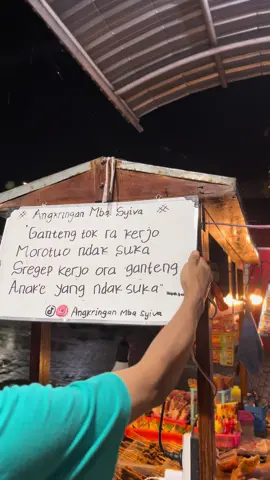 # Angkringan Mba Syiva #
"Ganteng tok ra kerjo
Morotuo ndak suka
Sregep kerjo ora ganteng
Anake yang ndak suka"
Angkringan Mba Syiva